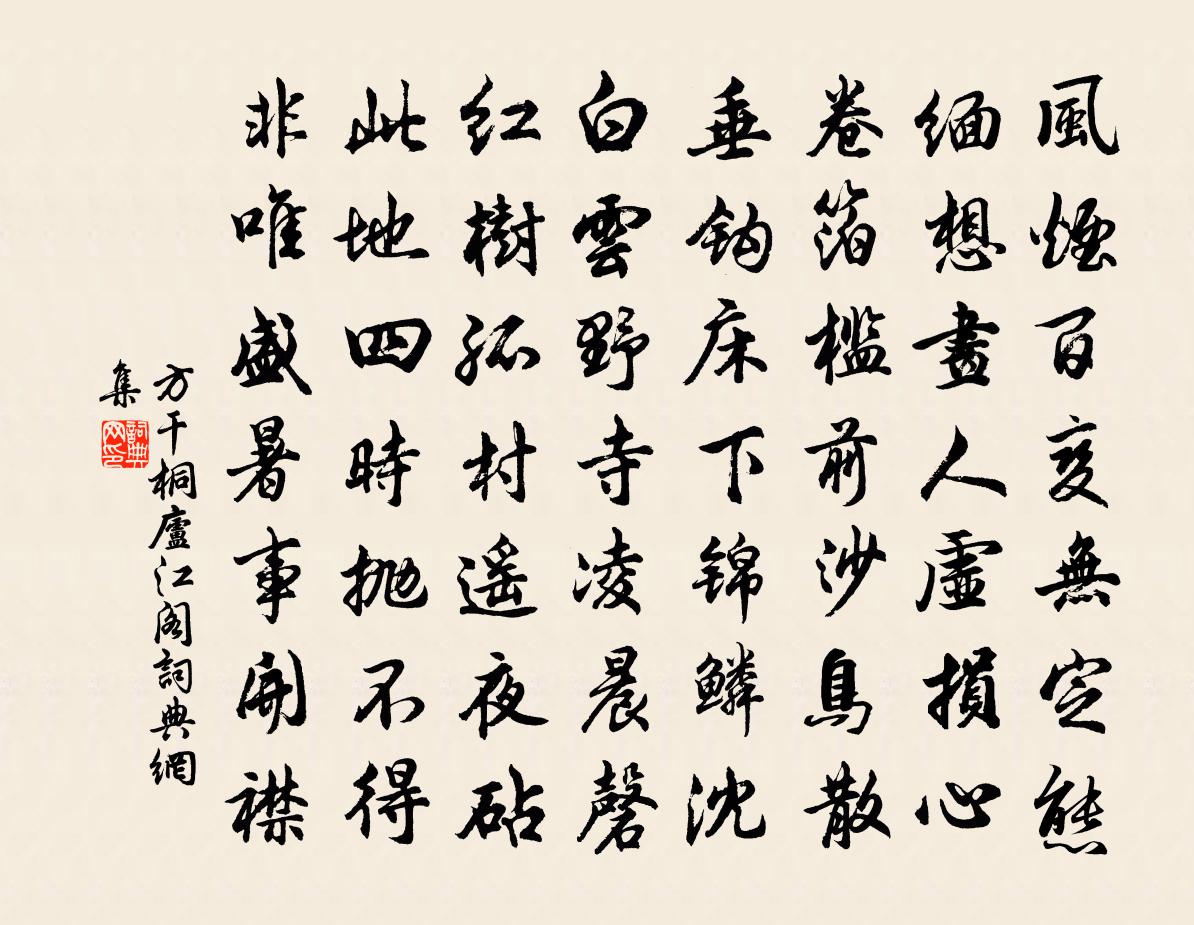 風煙百變無定態
緬想畫人虛損心
卷箔檻前沙鳥散
垂鈎床下錦鱗沈
白雲野寺凌晨磬
紅樹孤村遥夜砧
此地四時抛不得
非唯盛暑事開襟
方干桐廬江閣詞典網
集
詞典
网印